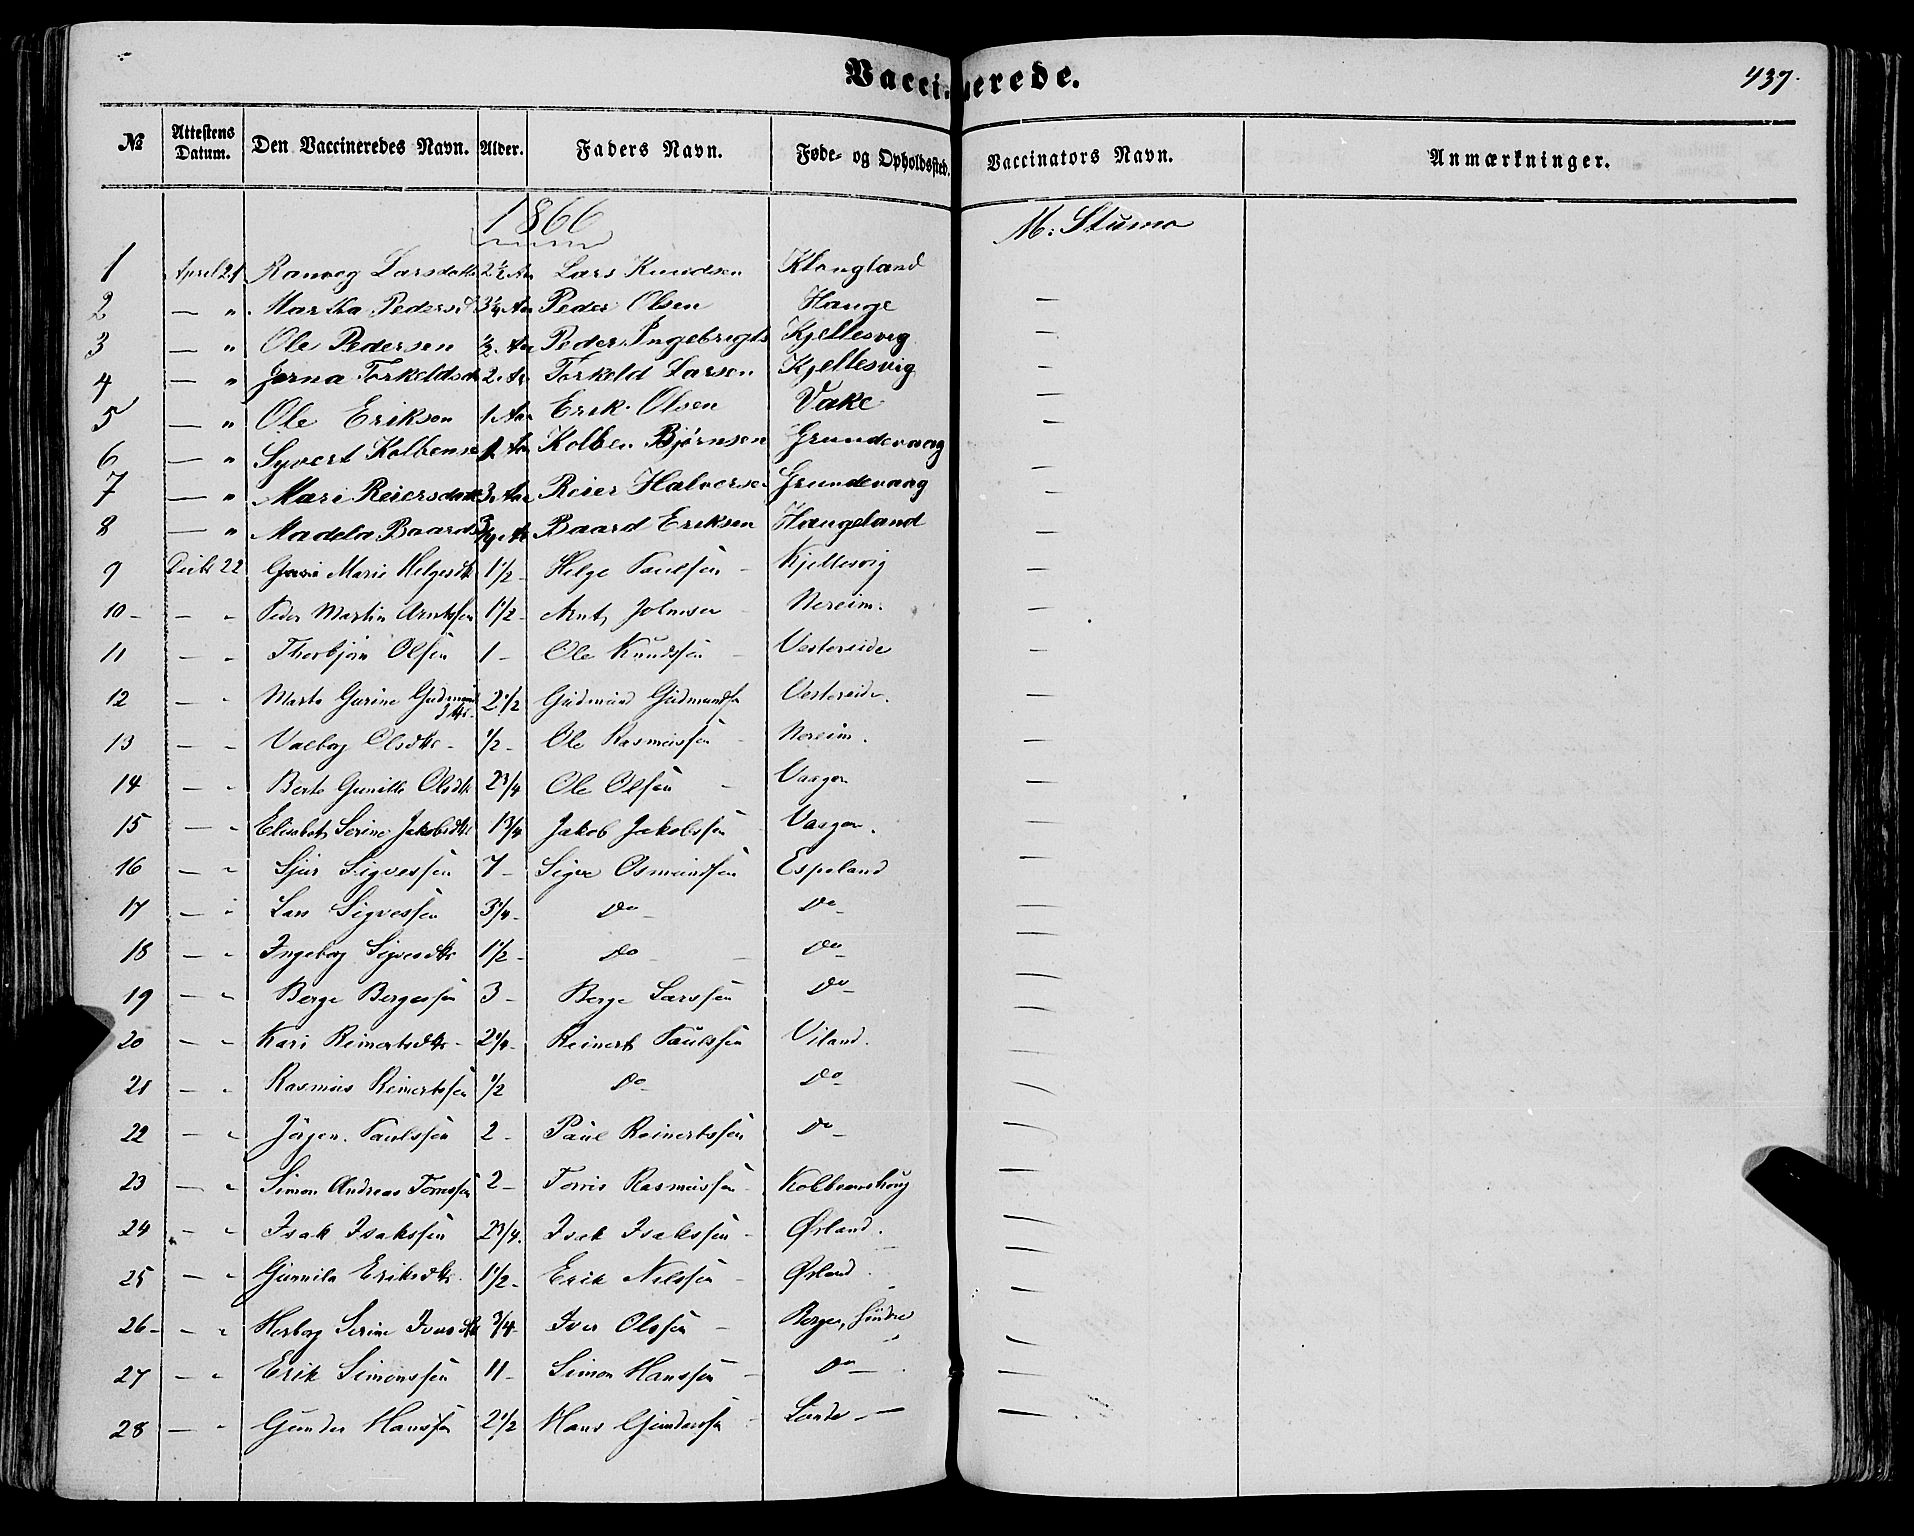 Vaccinerede.
437.
№ Attestens Datum. Den Vaccineredes Navn. Alder. Faders Navn. Føde- og Opholdssted. Vaccinators Navn. Anmærkninger.
1866
M: Stumo
1 April 21 Ranveg Larsdatt 2½ Aar Lars Knudsen Klongland
2 — " Martha Pedersd 3¼ Aar Peder Olsen Hauge —
3 — " Ole Pedersen ½ Aar Peder Ingebregts Kjellesvig —
4 — " Jorna Torkeldsd 2 Ar Torkeld Larsen Kjellesvig —
5 — " Ole Eriksen 1 Aar Erik Olsen Vake —
6 — " Syvert Kolbense 1 Aar Kolben Bjørnsen Grundevaag —
7 — " Mari Reiersdatt 3 Aar Reier Halvorsen Grundevaag —
8 — " Madela Baards ¾ Ar Baard Eriksen Haugeland —
9 Octb 22 Guri Marie Helgesdtr 1½ - Helge Paulsen - Kjellesvig —
10 - — " Peder Martin Arntssen 1½ - Arnt Johnsen - Nereim. —
11 — " Thorbjørn Olsen 1 - Ole Knudssen - Vestereide —
12 — " Marta Gurine Gudmundsdtr. 2½ Gudmund Gudmundss Vestereide. —
13 — " Valborg Olsdtr - ½ - Ole Rasmussen - Nereim. —
14 — " Berta Gunille Olsdtr 2¾ Ole Olsen - Vaagen —
15 — " Elisabeth Serine Jakobsdtr 1¾ Jakob Jakobssen Vaagen. —
16 — " Sjur Sigvessen 7 - Sigve Osmundsen Espeland —
17 — " Lars Sigvessen 3¼ - Do - Do - —
18 — " Ingeborg Sigvesdtr 1½ - Do - Do - —
19 — " Berge Bergessen 3 - Berge Larssen Do - —
20 — " Kari Reinertsdtr - 2¼ - Reinert Paulssen Viland. —
21 — " Rasmus Reinertssen ½ Do - Do - —
22 — " Jörgen Paulssen 2 - Paul Reinertssen Do - —
23 — " Simon Andreas Torrissen 2 - Torris Rasmussen - Kolbeinshaug —
24 — " Isak Isakssen 2¾. Isak Isakssen - Ørland. —
25 — " Gunnila Eriksdtr. 1½ - Erik Nilssen - Ørland. —
26 - — " Herborg Serine Iversdtr ¾ - Iver Olssen - Bergen, Søndre —
27 — " Erik Simonssen 11 - Simon Hanssen - Do — —
28 — " Gunder Hanssen 2½ Hans Gunderssen - Lunde - — —